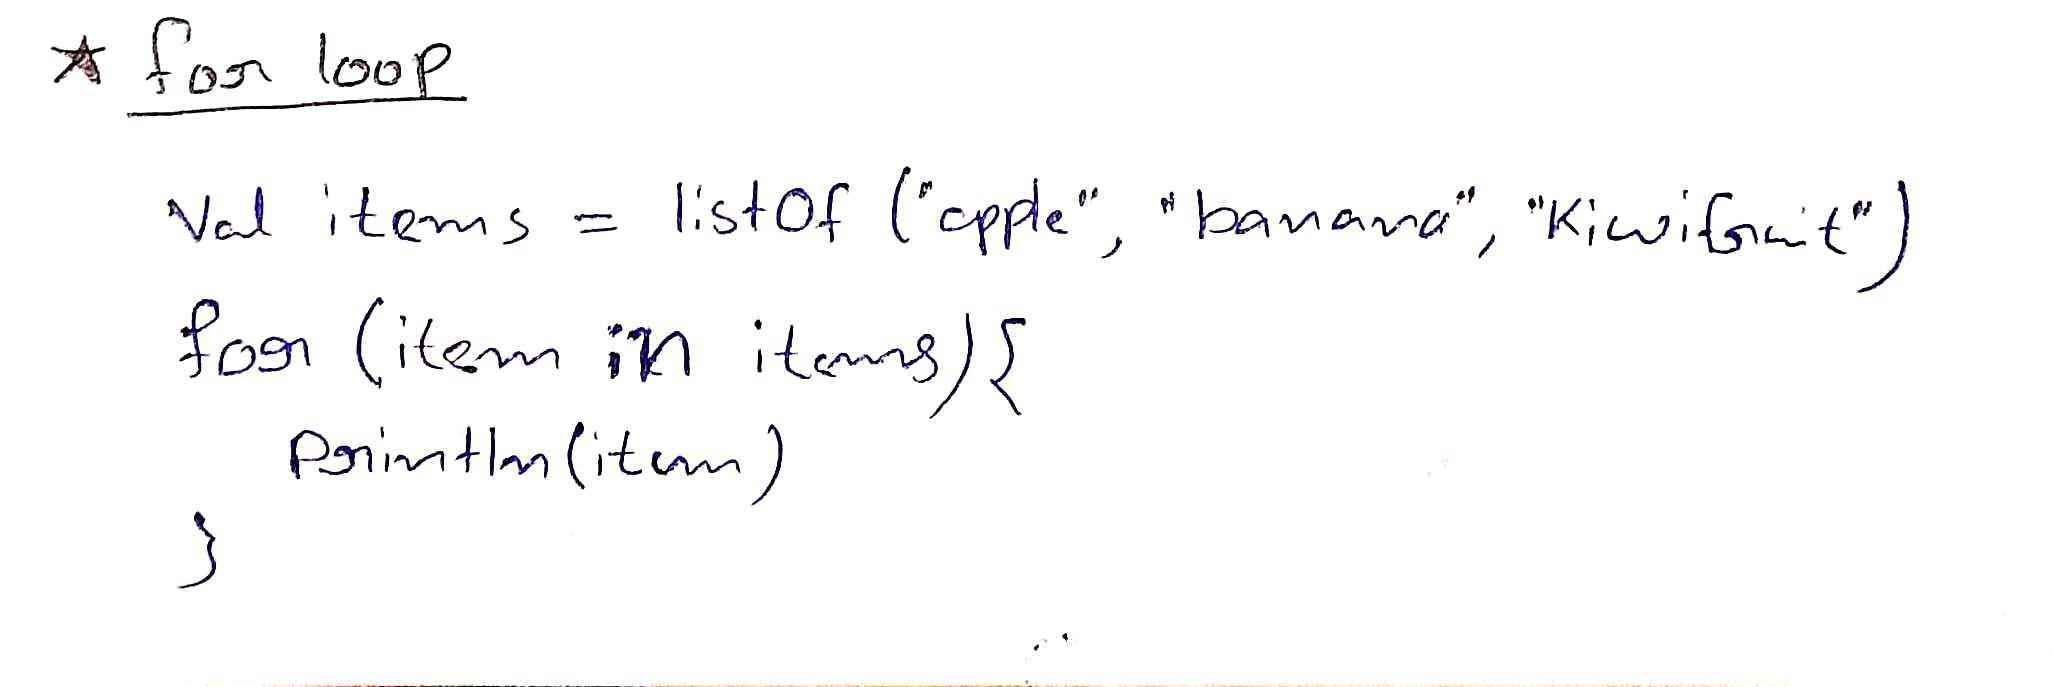 ★ for loop
Val items = listOf ("apple", "banana", "Kiwifruit")
for (item in items){
println(item)
}